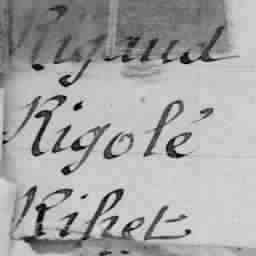 Rigaud
Rigolé
Rihet